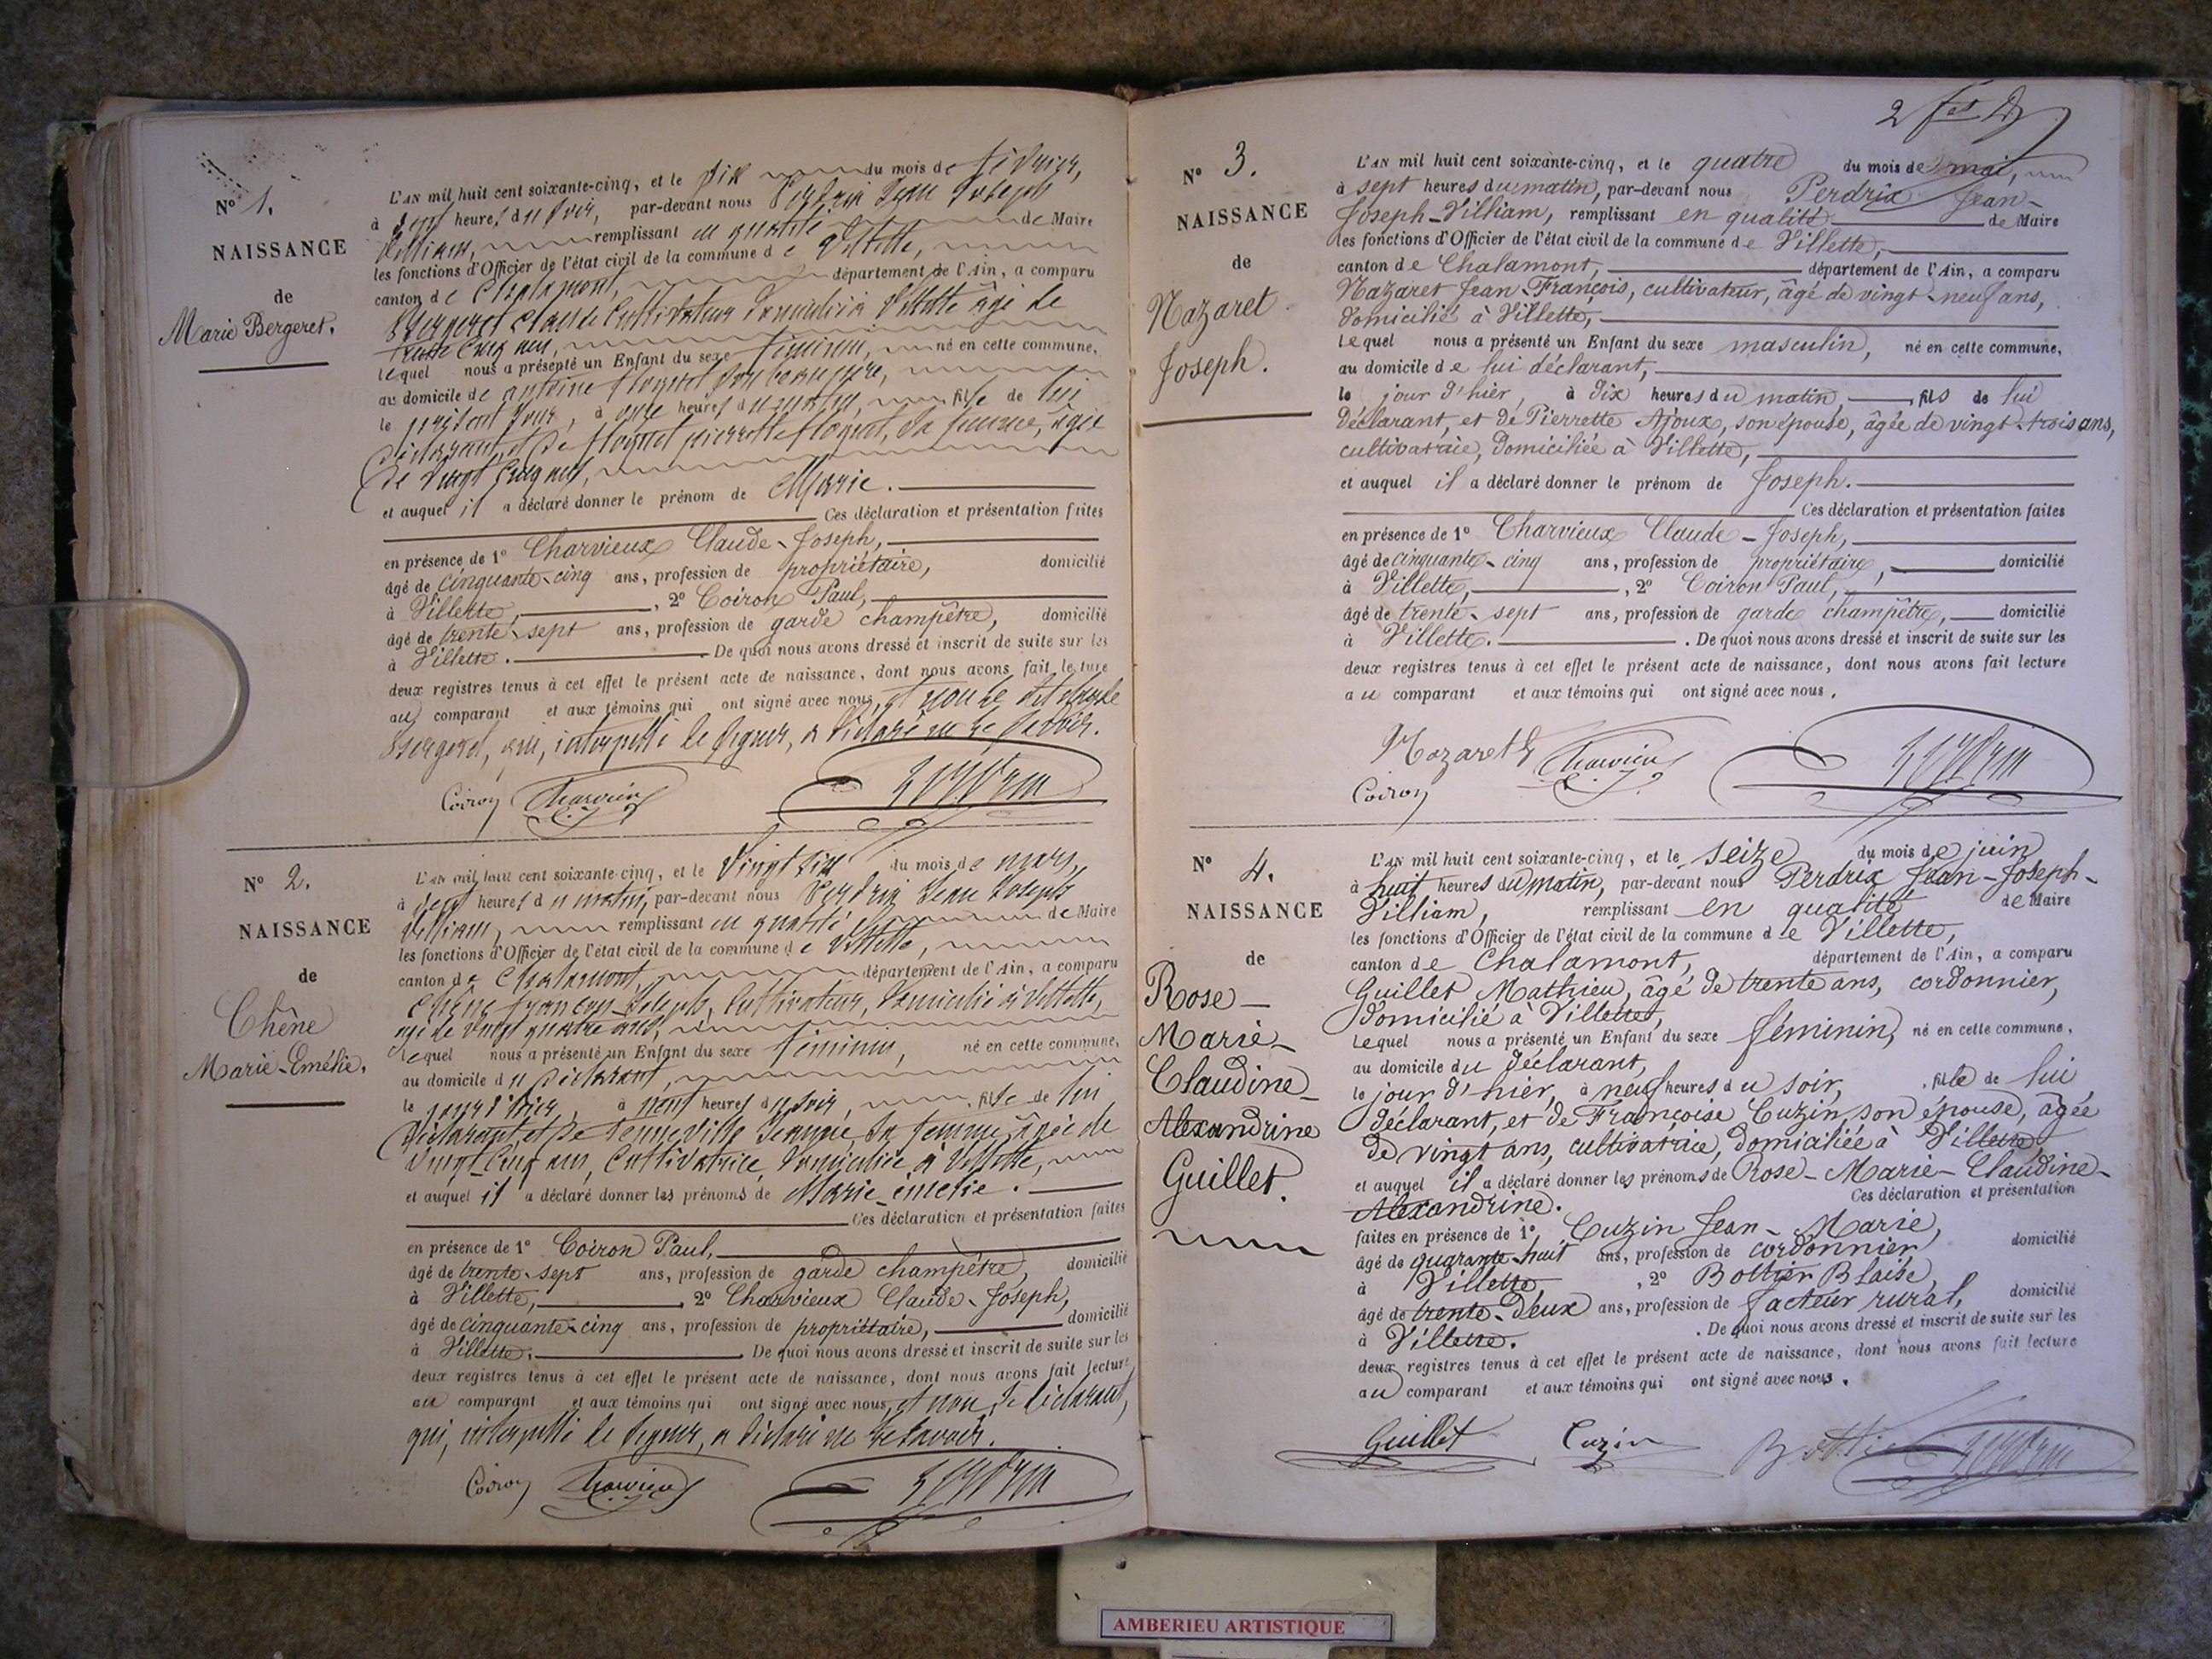 N° 1.
NAISSANCE
de
Marie Bergeret.
L'AN mil huit cent soixante-cinq, et le dix du mois de février,
à sept heures du soir, par-devant nous Perdrix Jean Joseph
Villiam, remplissant en qualité de Maire
les fonctions d'Officier de l'état civil de la commune de Villette,
canton de Chalamont, département de l'Ain, a comparu
Bergeret Claude Cultivateur domicilié à Villette âgé de
trente cinq ans,
lequel nous a présenté un Enfant du sexe féminin, né en cette commune,
au domicile de antoine son beau père,
le présent jour, à onze heures du matin, fille de lui
déclarant, et de pierrette, sa femme, âgée
de vingt cinq ans,
et auquel il a déclaré donner le prénom de Marie.
Ces déclaration et présentation faites
en présence de 1° Charvieux Claude-Joseph,
âgé de cinquante-cinq ans, profession de propriétaire, domicilié
à Villette, 2° Coiron Paul,
âgé de trente-sept ans, profession de garde champêtre, domicilié
à Villette. De quoi nous avons dressé et inscrit de suite sur les
deux registres tenus à cet effet le présent acte de naissance, dont nous avons fait lecture
au comparant et aux témoins qui ont signé avec nous, et non le dit Claude
Bergeret, qui, interpellé de signer, a déclaré ne le savoir.
Coiron Charvieux Perdrix
N° 2.
NAISSANCE
de
Chêne
Marie-Emélie.
L'AN mil huit cent soixante-cinq, et le vingt six du mois de mars,
à sept heures du matin, par-devant nous Perdrix Jean Joseph
Villiam, remplissant en qualité de Maire
les fonctions d'Officier de l'état civil de la commune de Villette,
canton de Chalamont, département de l'Ain, a comparu
Chêne françois Joseph, Cultivateur, domicilié à Villette,
agé de vingt quatre ans,
lequel nous a présenté un Enfant du sexe féminin, né en cette commune,
au domicile du déclarant,
le jour d'hier, à neuf heures du soir, fille de lui
déclarant, et de Jeanne, sa femme, âgée de
vingt cinq ans, Cultivatrice, domiciliée à Villette,
et auquel il a déclaré donner les prénoms de Marie-émelie.
Ces déclaration et présentation faites
en présence de 1° Coiron Paul,
âgé de trente-sept ans, profession de garde champêtre, domicilié
à Villette, 2° Charvieux Claude-Joseph,
âgé de cinquante-cinq ans, profession de propriétaire, domicilié
à Villette. De quoi nous avons dressé et inscrit de suite sur les
deux registres tenus à cet effet le présent acte de naissance, dont nous avons fait lecture
au comparant et aux témoins qui ont signé avec nous, et non le déclarant,
qui, interpellé de signer, a déclaré ne le savoir.
Coiron Charvieux Perdrix
N° 3.
NAISSANCE
de
Nazaret
Joseph.
L'AN mil huit cent soixante-cinq, et le quatre du mois de mai,
à sept heures du matin, par-devant nous Perdrix Jean-
Joseph-Villiam, remplissant en qualité de Maire
les fonctions d'Officier de l'état civil de la commune de Villette,
canton de Chalamont, département de l'Ain, a comparu
Nazaret Jean-François, cultivateur, âgé de vingt-neuf ans,
domicilié à Villette,
lequel nous a présenté un Enfant du sexe masculin, né en cette commune,
au domicile de lui déclarant,
le jour d'hier, à dix heures du matin, fils de lui
déclarant, et de Pierrette Ajoux, son épouse, âgée de vingt-trois ans,
cultivatrice, domiciliée à Villette,
et auquel il a déclaré donner le prénom de Joseph.
Ces déclaration et présentation faites
en présence de 1° Charvieux Claude-Joseph,
âgé de cinquante-cinq ans, profession de propriétaire, domicilié
à Villette, 2° Coiron Paul,
âgé de trente-sept ans, profession de garde champêtre, domicilié
à Villette. De quoi nous avons dressé et inscrit de suite sur les
deux registres tenus à cet effet le présent acte de naissance, dont nous avons fait lecture
au comparant et aux témoins qui ont signé avec nous.
Nazareth Charvieux Perdrix
Coiron
N° 4.
NAISSANCE
de
Rose-
Marie-
Claudine-
Alexandrine
Guillet.
L'AN mil huit cent soixante-cinq, et le seize du mois de juin
à huit heures du matin, par-devant nous Perdrix Jean-Joseph-
Villiam, remplissant en qualité de Maire
les fonctions d'Officier de l'état civil de la commune de Villette,
canton de Chalamont, département de l'Ain, a comparu
Guillet Mathieu, âgé de trente ans, cordonnier,
domicilié à Villette,
lequel nous a présenté un Enfant du sexe féminin, né en cette commune,
au domicile du déclarant,
le jour d'hier, à neuf heures du soir, fille de lui
déclarant, et de Françoise Cuzin, son épouse, âgée
de vingt ans, cultivatrice, domiciliée à Villette,
et auquel il a déclaré donner les prénoms de Rose-Marie-Claudine-
Alexandrine. Ces déclaration et présentation
faites en présence de 1° Cuzin Jean-Marie,
âgé de quarante-huit ans, profession de cordonnier, domicilié
à Villette, 2° Bottier Blaise,
âgé de trente-deux ans, profession de facteur rural, domicilié
à Villette. De quoi nous avons dressé et inscrit de suite sur les
deux registres tenus à cet effet le présent acte de naissance, dont nous avons fait lecture
au comparant et aux témoins qui ont signé avec nous.
Guillet Cuzin Bottier Perdrix
AMBERIEU ARTISTIQUE